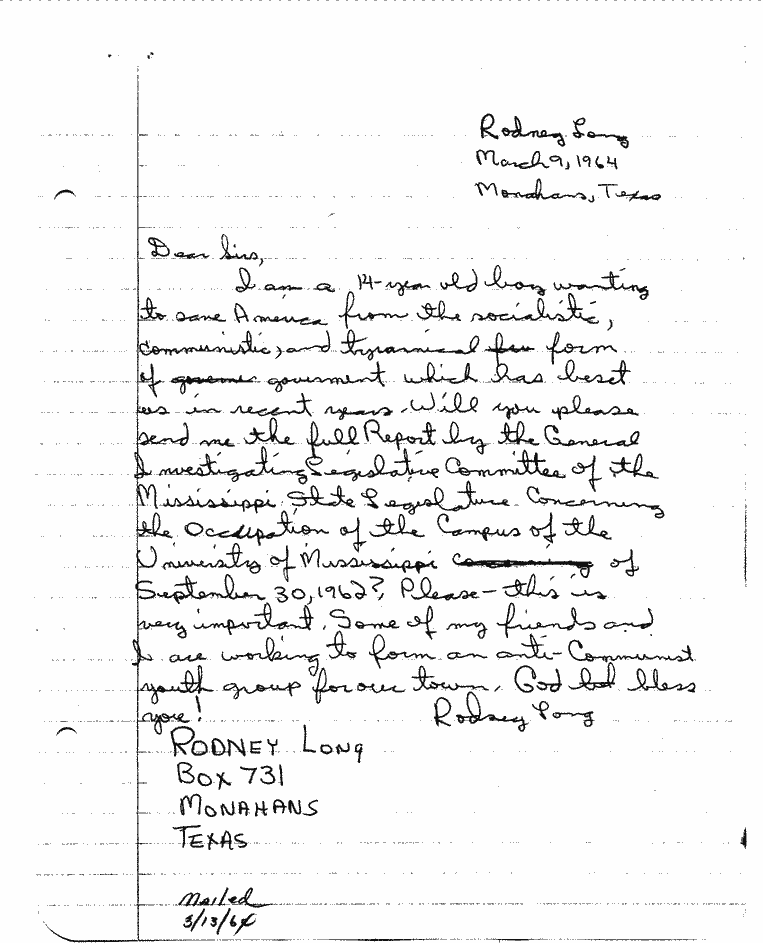 Rodney Long
March 9, 1964
Monahans, Texas
Dear Sirs,
I am a 14-year old boy wanting
to save America from the socialistic,
communistic, and tyranical form
of gouverment which has beset
us in recent years. Will you please
send me the full Report by the General
Investigating Legislative Committee of the
Mississippi State Legislature Concerning
the Occupation of the Campus of the
University of Mississippi of
September 30, 1962? Please - this is
very important. Some of my friends and
I are working to form an anti-Communist
youth group for our town. God bless
you!
Rodney Long
RODNEY LONG
BOX 731
MONAHANS
TEXAS
Mailed
3/13/64